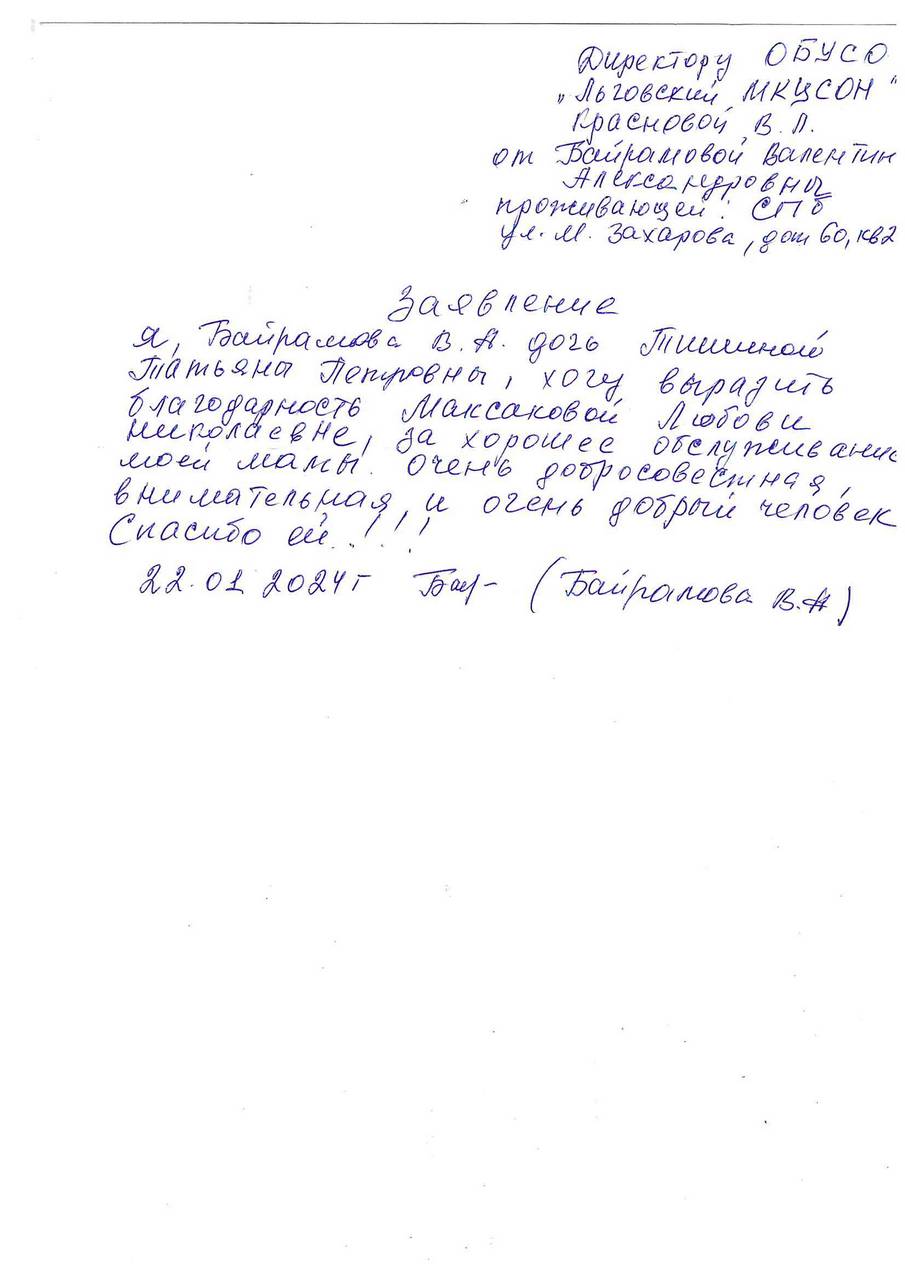 Директору ОБУСО
„Льговский МКЦСОН"
Красновой В.Л.
от Байрамовой Валентин
Александровны
проживающей: СПб
ул. М. Захарова, дом 60, кв2
Заявление
Я, Байрамова В.А. дочь Тишиной
Татьяны Петровны, хочу выразить
благодарность Максаковой Любови
Николаевне, за хорошее обслуживание
моей мамы. Очень добросовестная,
внимательная, и очень добрый человек
Спасибо ей!!!
22.01 2024г Бай- (Байрамова В.А)